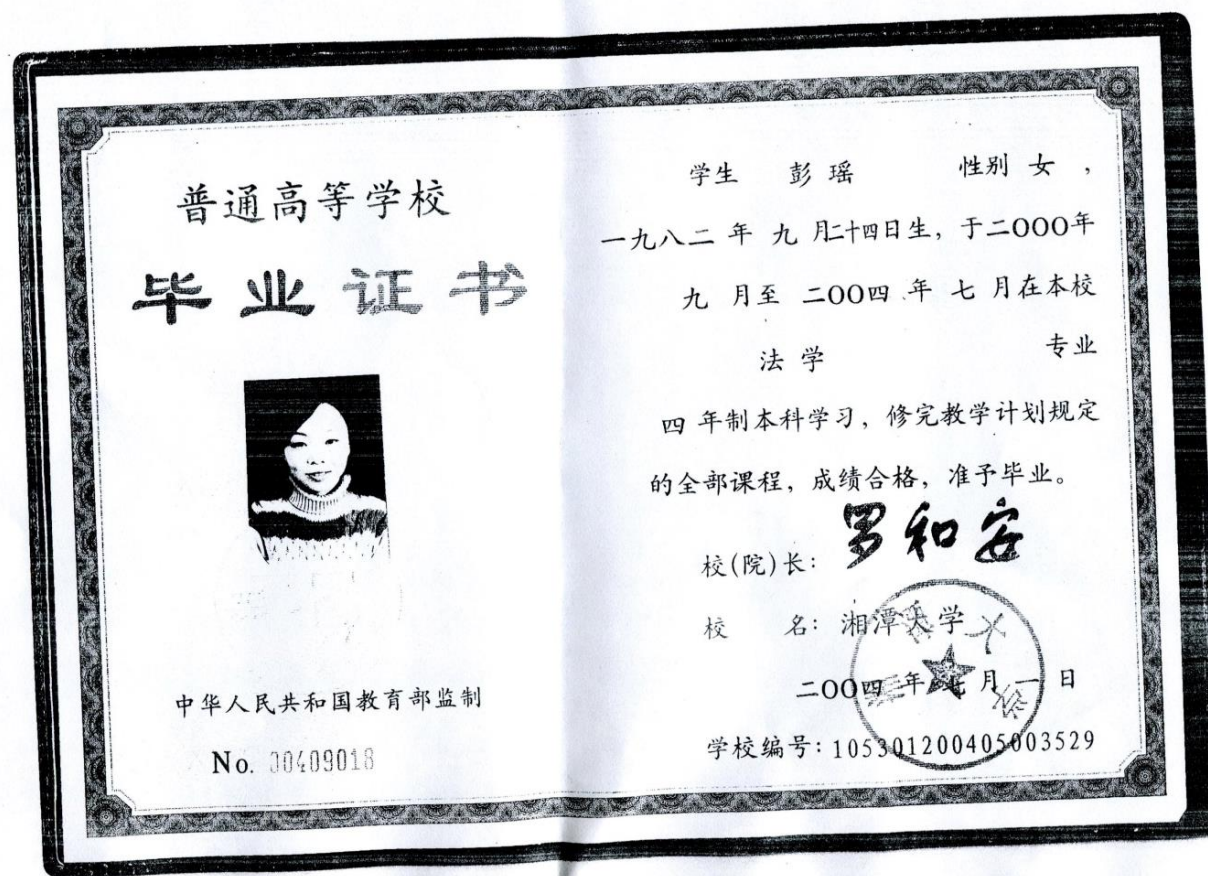 普通高等学校
毕业证书
中华人民共和国教育部监制
No. 00409018
学生 彭瑶 性别 女,
一九八二 年 九 月二十四日生, 于二〇〇〇年
九 月至 二〇〇四 年 七 月在本校
法学 专业
四 年制本科学习, 修完教学计划规定
的全部课程, 成绩合格, 准予毕业。
校(院)长: 罗和安
校 名: 湘潭大学
二〇〇四 年 七 月 一 日
学校编号: 105301200405003529